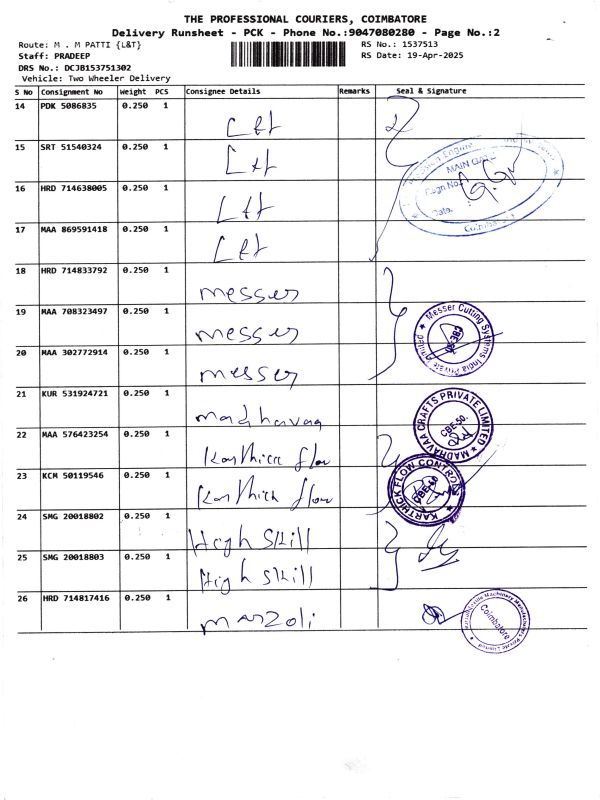 THE PROFESSIONAL COURIERS, COIMBATORE
Delivery Runsheet - PCK - Phone No.:9047080280 - Page No.:2
Route: M . M PATTI {L&T}
RS No.: 1537513
Staff: PRADEEP
RS Date: 19-Apr-2025
DRS No.: DCJB153751302
Vehicle: Two Wheeler Delivery
S No Consignment No Weight PCS Consignee Details Remarks Seal & Signature
14 PDK 5086835 0.250 1 L&T
15 SRT 51540324 0.250 1 L&T
16 HRD 714638005 0.250 1 L&T
17 MAA 869591418 0.250 1 L&T
MAIN GATE
Coimbatore
18 HRD 714833792 0.250 1 messer
19 MAA 708323497 0.250 1 messer
20 MAA 302772914 0.250 1 messer
Messer Cutting Systems India Private Limited
21 KUR 531924721 0.250 1 madhavaa
MADHAVAA CRAFTS PRIVATE LIMITED
CBE-50.
22 MAA 576423254 0.250 1 Karthick flow
23 KCM 50119546 0.250 1 Karthick flow
KARTHICK FLOW CONTROLS
24 SMG 20018802 0.250 1 High Skill
25 SMG 20018803 0.250 1 High Skill
26 HRD 714817416 0.250 1 marzoli
Machinery Manufacturers Private Limited
Coimbatore